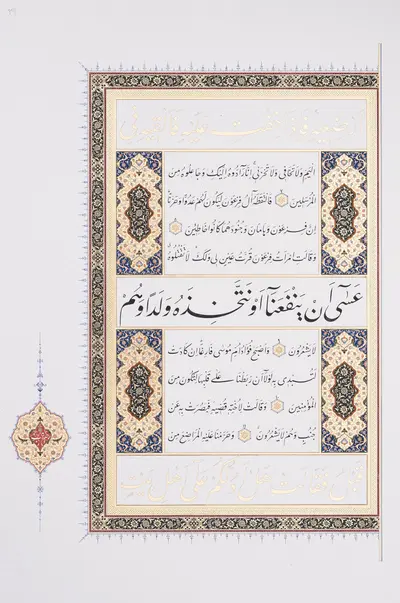 أرضعيه فإذا خفت عليه فألقيه في
اليم ولا تخافي ولا تحزني إنا رادوه إليك وجاعلوه من
المرسلين فالتقطه آل فرعون ليكون لهم عدوا وحزنا
إن فرعون وهامان وجنودهما كانوا خاطئين
وقالت امرأت فرعون قرت عين لي ولك لا تقتلوه
عسى أن ينفعنا أو نتخذه ولدا وهم
لا يشعرون وأصبح فؤاد أم موسى فارغا إن كادت
لتبدي به لولا أن ربطنا على قلبها لتكون من
المؤمنين وقالت لأخته قصيه فبصرت به عن
جنب وهم لا يشعرون وحرمنا عليه المراضع من
قبل فقالت هل أدلكم على أهل بيت